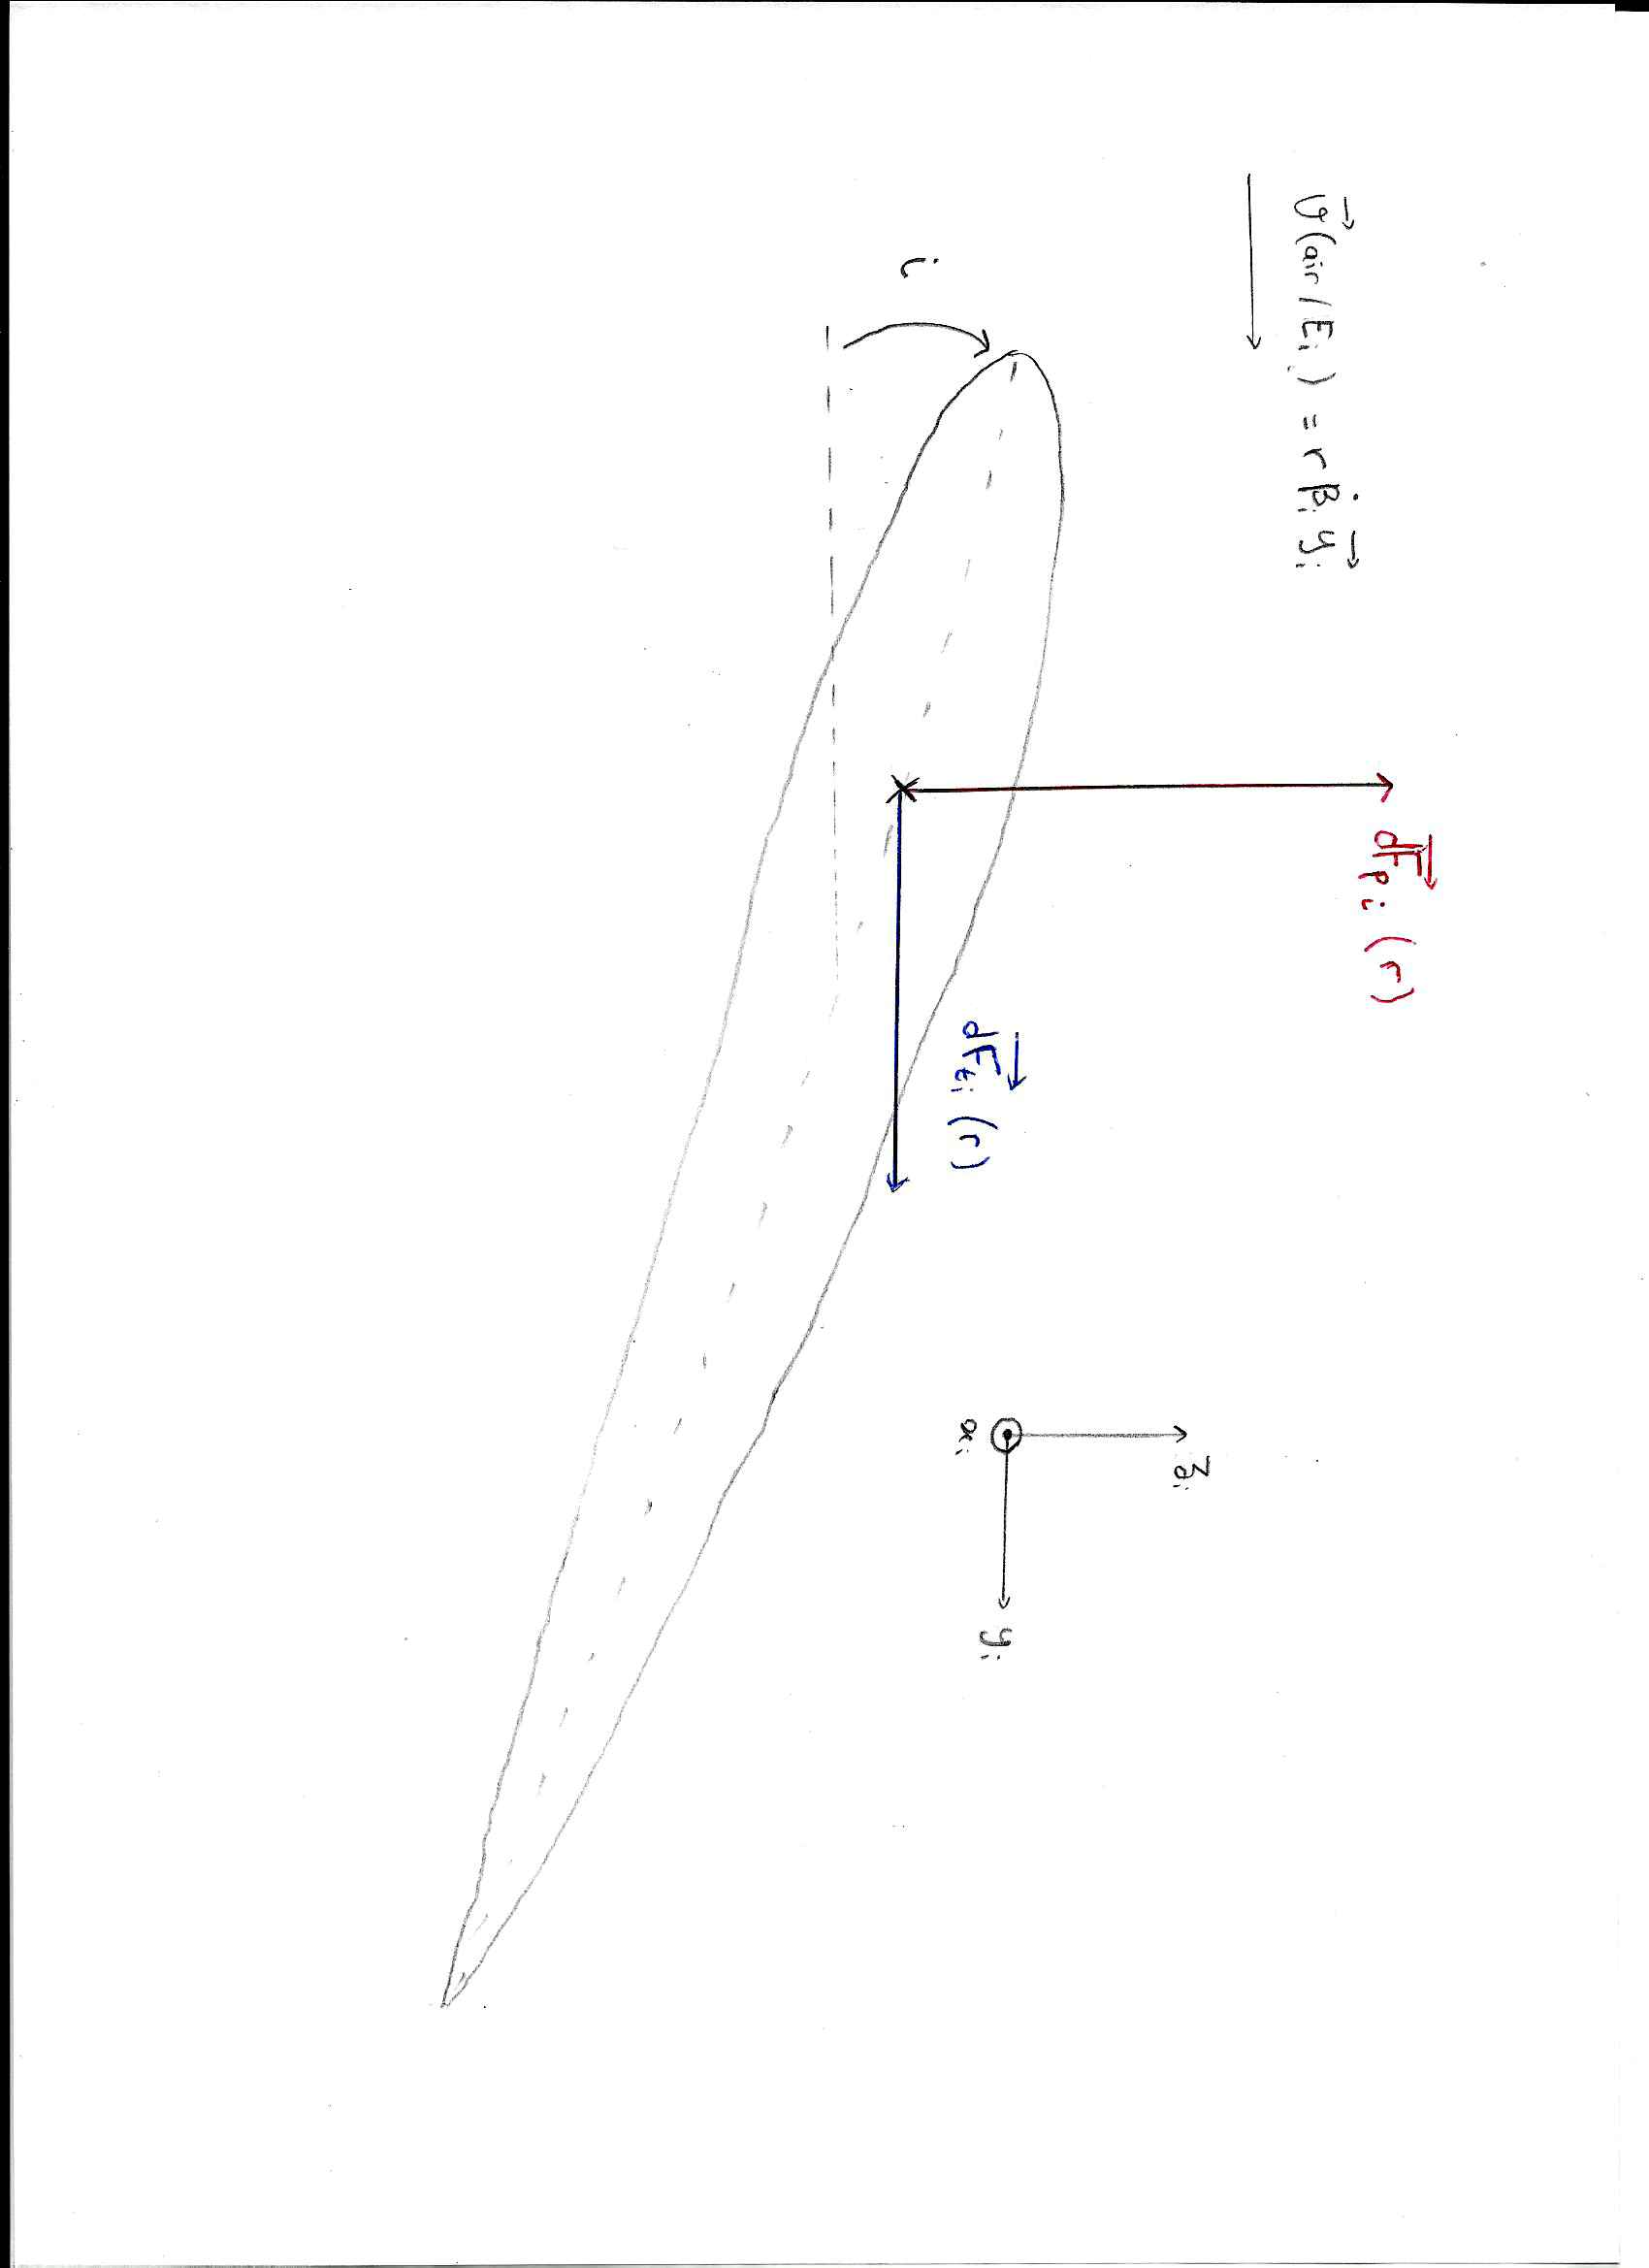 v⃗(air/Eᵢ) = r β̇ᵢ y⃗ᵢ
i
dF⃗pi (r)
dF⃗ti (r)
zᵢ
xᵢ
yᵢ